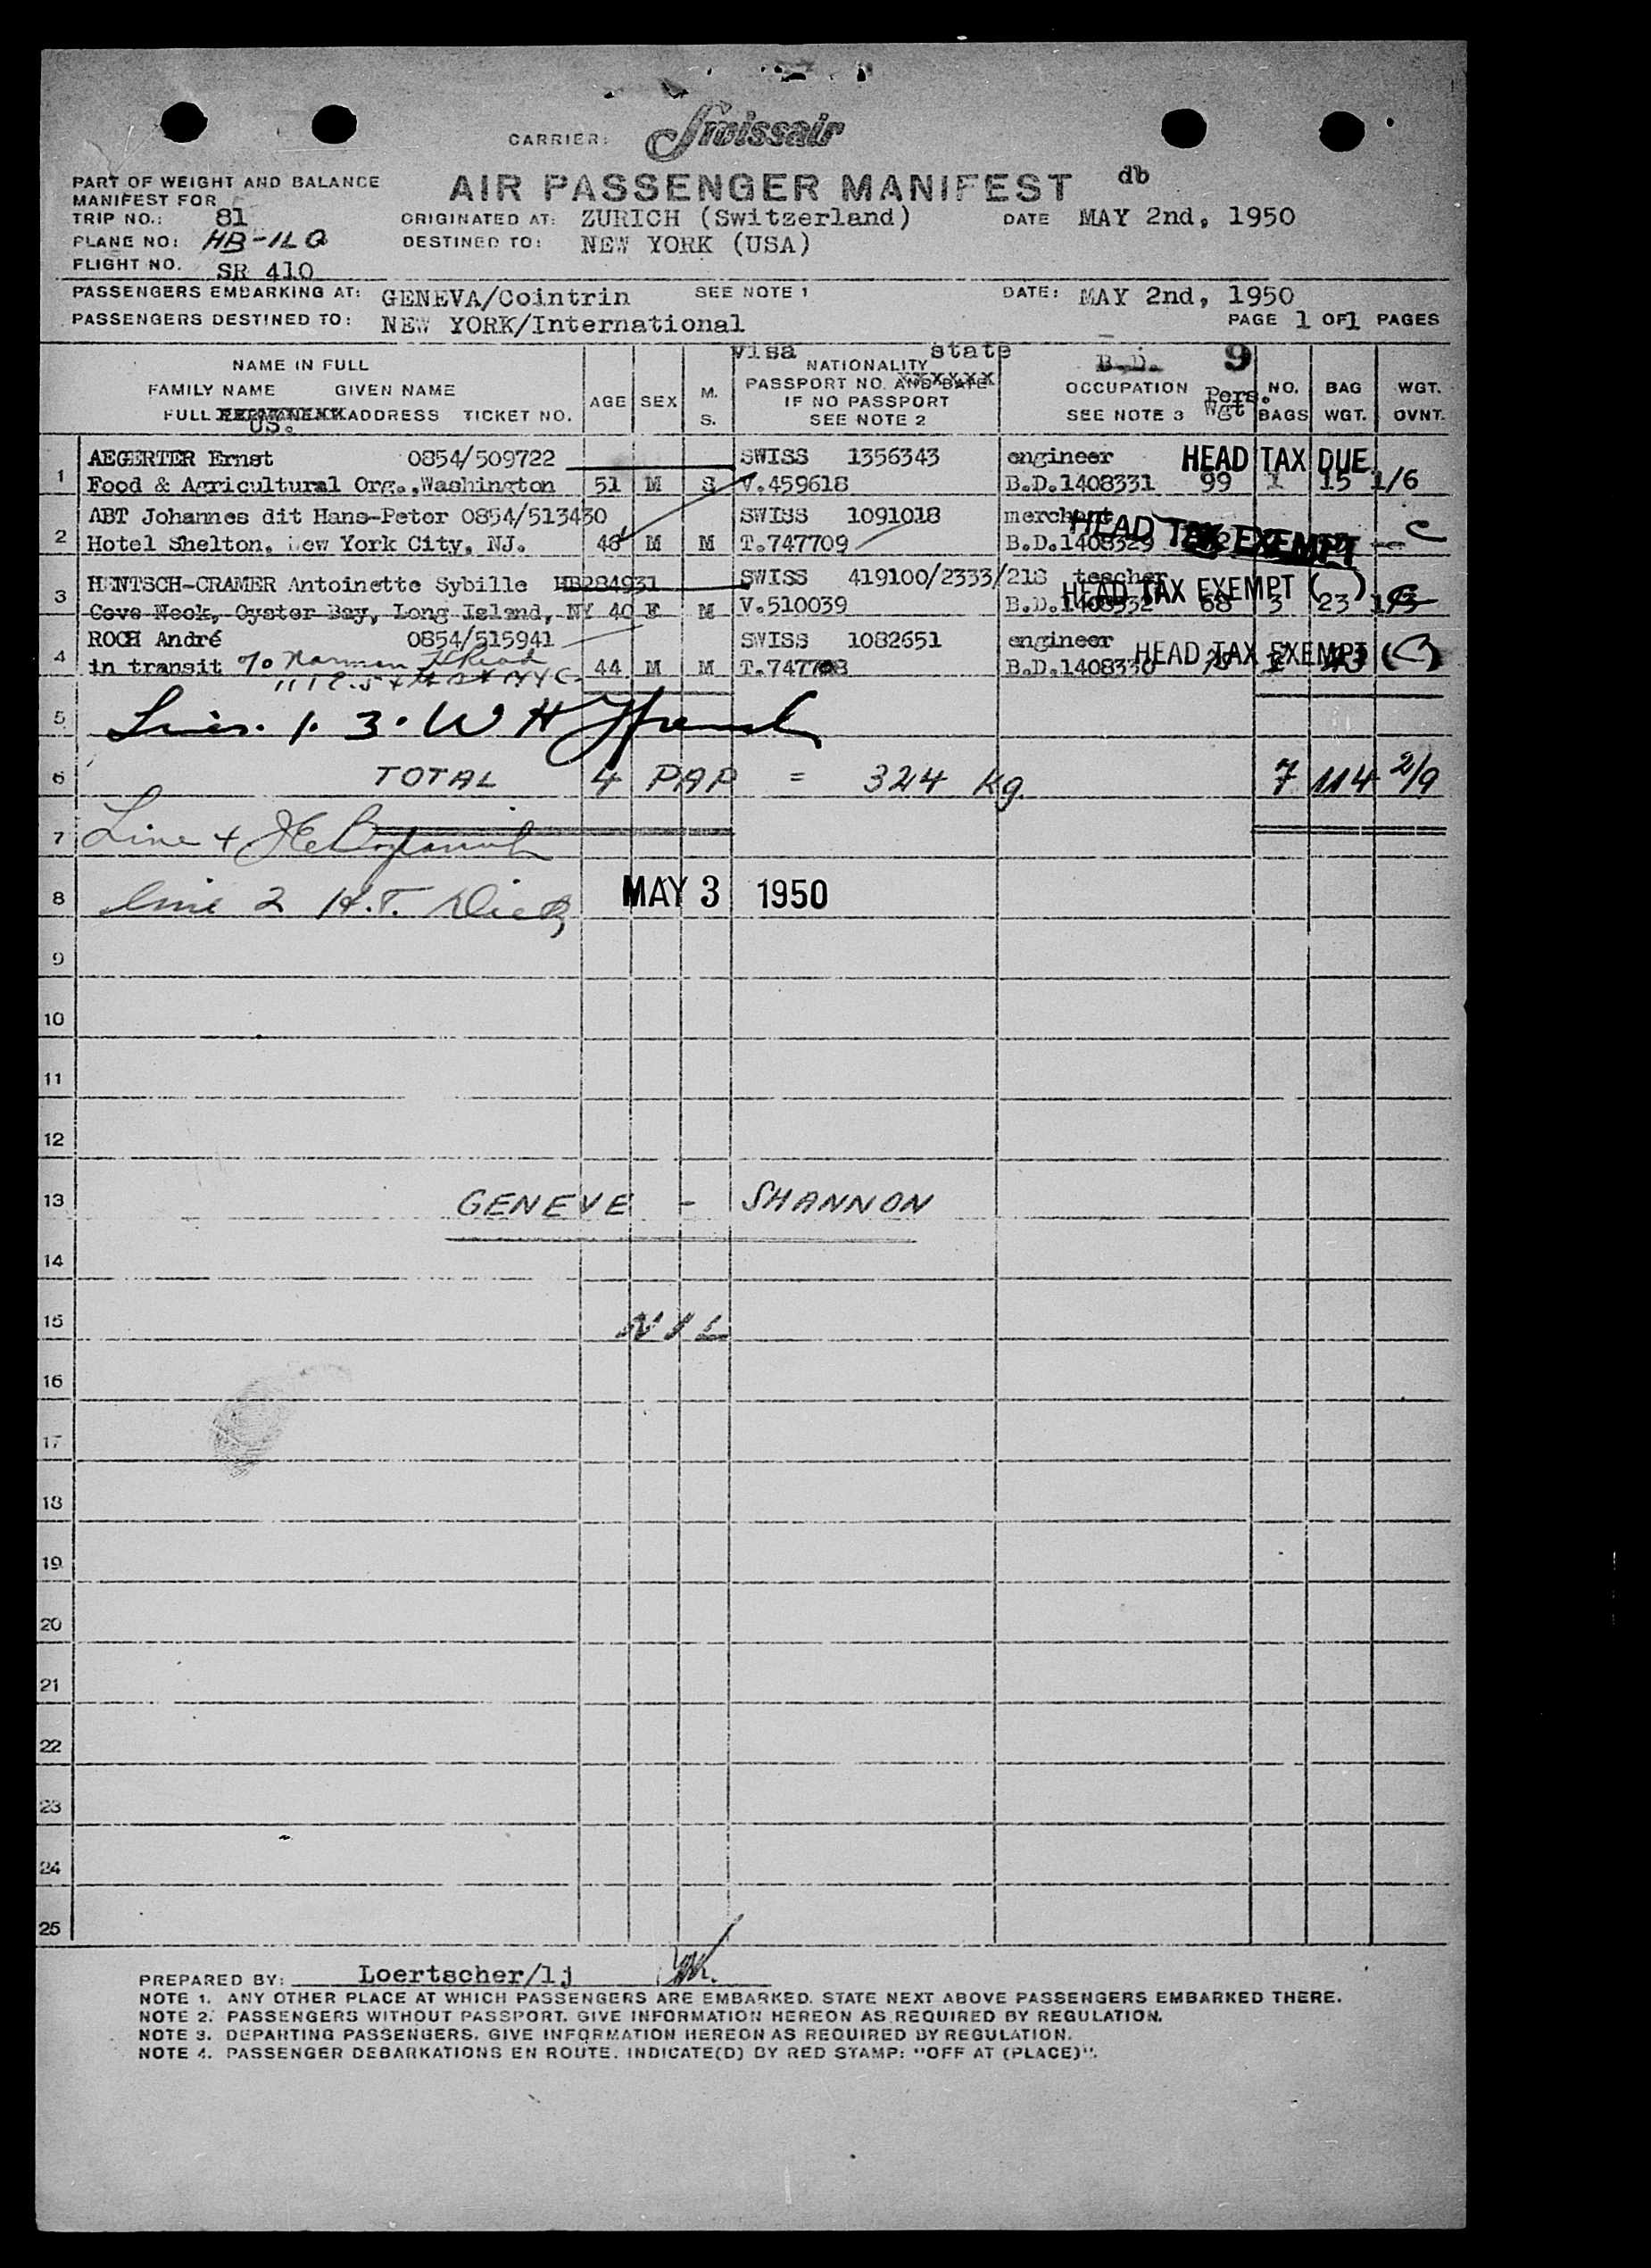 CARRIER: Swissair
PART OF WEIGHT AND BALANCE
MANIFEST FOR
AIR PASSENGER MANIFEST db
TRIP NO.: 81 ORIGINATED AT: ZURICH (Switzerland) DATE MAY 2nd, 1950
PLANE NO: HB-ILQ DESTINED TO: NEW YORK (USA)
FLIGHT NO. SR 410
PASSENGERS EMBARKING AT: GENEVA/Cointrin SEE NOTE 1 DATE: MAY 2nd, 1950
PASSENGERS DESTINED TO: NEW YORK/International PAGE 1 OF 1 PAGES
visa state B.D. 9
NAME IN FULL NATIONALITY
FAMILY NAME GIVEN NAME AGE SEX M. PASSPORT NO. AND DATE OCCUPATION Pers. NO. BAG WGT.
IF NO PASSPORT
FULL ADDRESS TICKET NO. S. SEE NOTE 2 SEE NOTE 3 Wgt BAGS WGT. OVNT.
US.
1 AEGERTER Ernst 0854/509722 SWISS 1356343 engineer HEAD TAX DUE
Food & Agricultural Org.,Washington 51 M S V.459618 B.D.1408331 99 1 15 1/6
ABT Johannes dit Hans-Peter 0854/513430 SWISS 1091018 merchant HEAD TAX EXEMPT
2 Hotel Shelton, New York City, NJ. 46 M M T.747709 B.D.1408329 C
HENTSCH-CRAMER Antoinette Sybille HB284931 SWISS 419100/2333/218 teacher
3 HEAD TAX EXEMPT ( )
Cove Neck, Oyster Bay, Long Island, NY 40 F M V.510039 B.D.1408332 68 3 23 1/3
ROCH André 0854/515941 SWISS 1082651 engineer HEAD TAX EXEMPT (C)
4 in transit c/o Norman 44 M M T.747708 B.D.1408330
5 Lines. 1. 3. W H
6 TOTAL 4 PAP = 324 Kg 7 114 2/9
7 Line 4
8 line 2 H.T. MAY 3 1950
9
10
11
12
13 GENEVE - SHANNON
14
15 NIL
16
17
18
19
20
21
22
23
24
25
PREPARED BY: Loertscher/lj
NOTE 1. ANY OTHER PLACE AT WHICH PASSENGERS ARE EMBARKED. STATE NEXT ABOVE PASSENGERS EMBARKED THERE.
NOTE 2. PASSENGERS WITHOUT PASSPORT. GIVE INFORMATION HEREON AS REQUIRED BY REGULATION.
NOTE 3. DEPARTING PASSENGERS. GIVE INFORMATION HEREON AS REQUIRED BY REGULATION.
NOTE 4. PASSENGER DEBARKATIONS EN ROUTE. INDICATE(D) BY RED STAMP: "OFF AT (PLACE)".